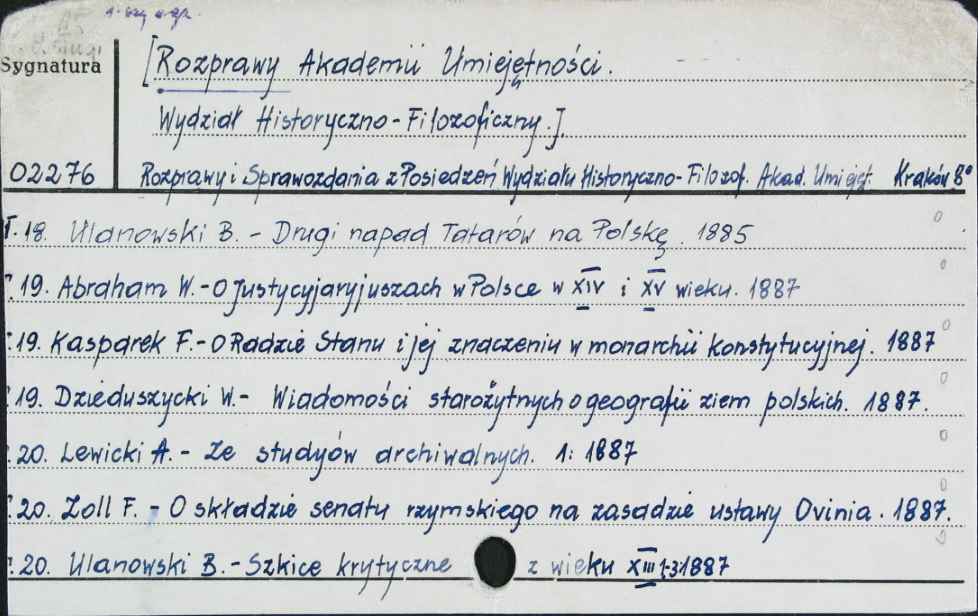 Sygnatura
[Rozprawy Akademii Umiejętności.
Wydział Historyczno-Filozoficzny.].
02276
Rozprawy i Sprawozdania z Posiedzeń Wydziału Historyczno-Filozof. Akad. Umiejęt. Kraków 8°
T.18. Ulanowski B. - Drugi napad Tatarów na Polskę. 1885
T.19. Abraham W. - O justycyjaryjuszach w Polsce w XIV i XV wieku. 1887
T.19. Kasparek F. - O Radzie Stanu i jej znaczeniu w monarchii konstytucyjnej. 1887
T.19. Dzieduszycki W. - Wiadomości starożytnych o geografii ziem polskich. 1887.
T.20. Lewicki A. - Ze studyów archiwalnych. 1: 1887
T.20. Zoll F. - O składzie senatu rzymskiego na zasadzie ustawy Ovinia. 1887.
T.20. Ulanowski B. - Szkice krytyczne z wieku XIII 1-3 1887